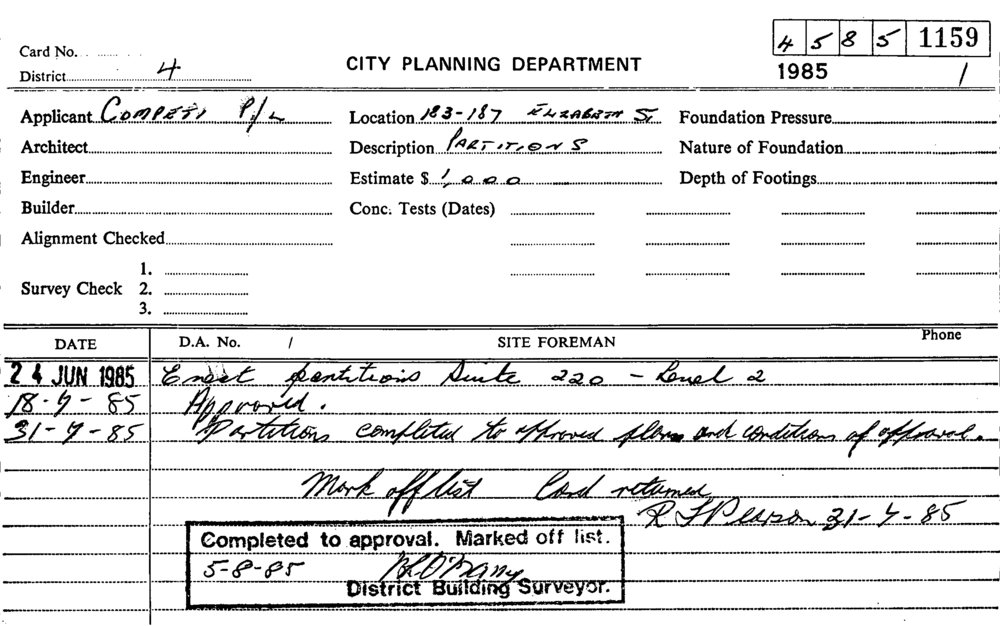 4 5 8 5 1159
Card No.
District 4
CITY PLANNING DEPARTMENT
1985 /
Applicant COMPETI P/L
Location 183-187 ELIZABETH ST
Foundation Pressure
Architect
Description PARTITIONS
Nature of Foundation
Engineer
Estimate $ 1,000
Depth of Footings
Builder
Conc. Tests (Dates)
Alignment Checked
1.
Survey Check 2.
3.
DATE
D.A. No. /
SITE FOREMAN
Phone
24 JUN 1985 Erect partitions Suite 220 - Level 2
18-7-85 Approved.
31-7-85 Partitions completed to approved plan and conditions of approval.
Mark off list Card returned
R Pearson 31-7-85
Completed to approval. Marked off list.
5-8-85
District Building Surveyor.